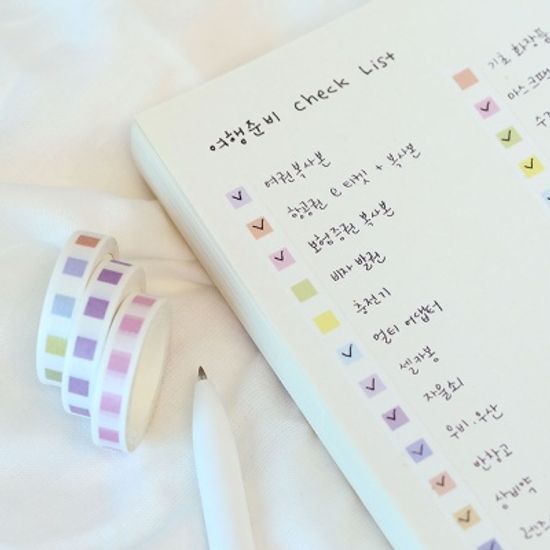 여행준비 check List
여권복사본
항공권 e 티켓 + 복사본
보험증권 복사본
비자 발권
충전기
멀티 어댑터
셀카봉
자물쇠
우비.우산
반창고
상비약
렌즈
기초 화장품
마스크팩